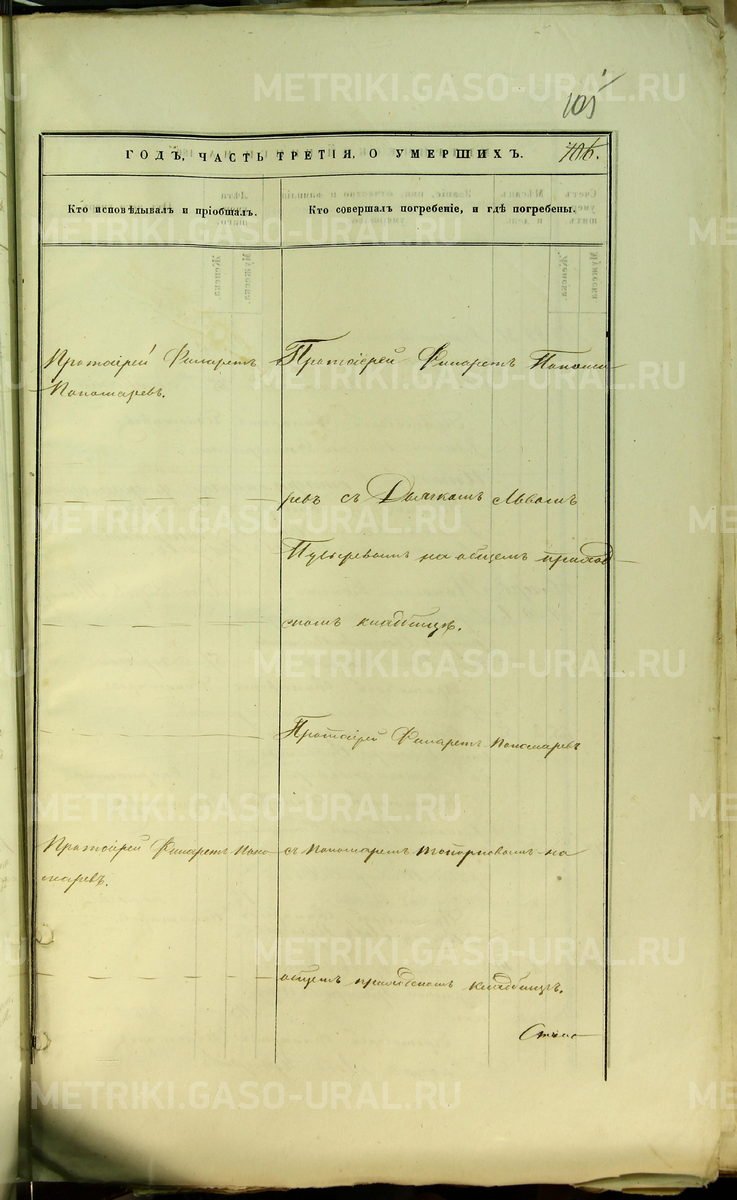 105
ГОДЪ, ЧАСТЬ ТРЕТІЯ, О УМЕРШИХЪ.
106.
Кто исповѣдывалъ и пріобщалъ.
Кто совершалъ погребеніе, и гдѣ погребены.
Протоіерей Филаретъ
Пономаревъ.
Протоіерей Филаретъ Понома-
ревъ съ Дьячкомъ Львомъ
Пузыревымъ на общемъ приход-
скомъ кладбищѣ.
Протоіерей Филаретъ Пономаревъ
Протоіерей Филаретъ Поно-
маревъ.
съ пономаремъ Топорковымъ на
общемъ приходскомъ кладбищѣ.
METRIKI.GASO-URAL.RU